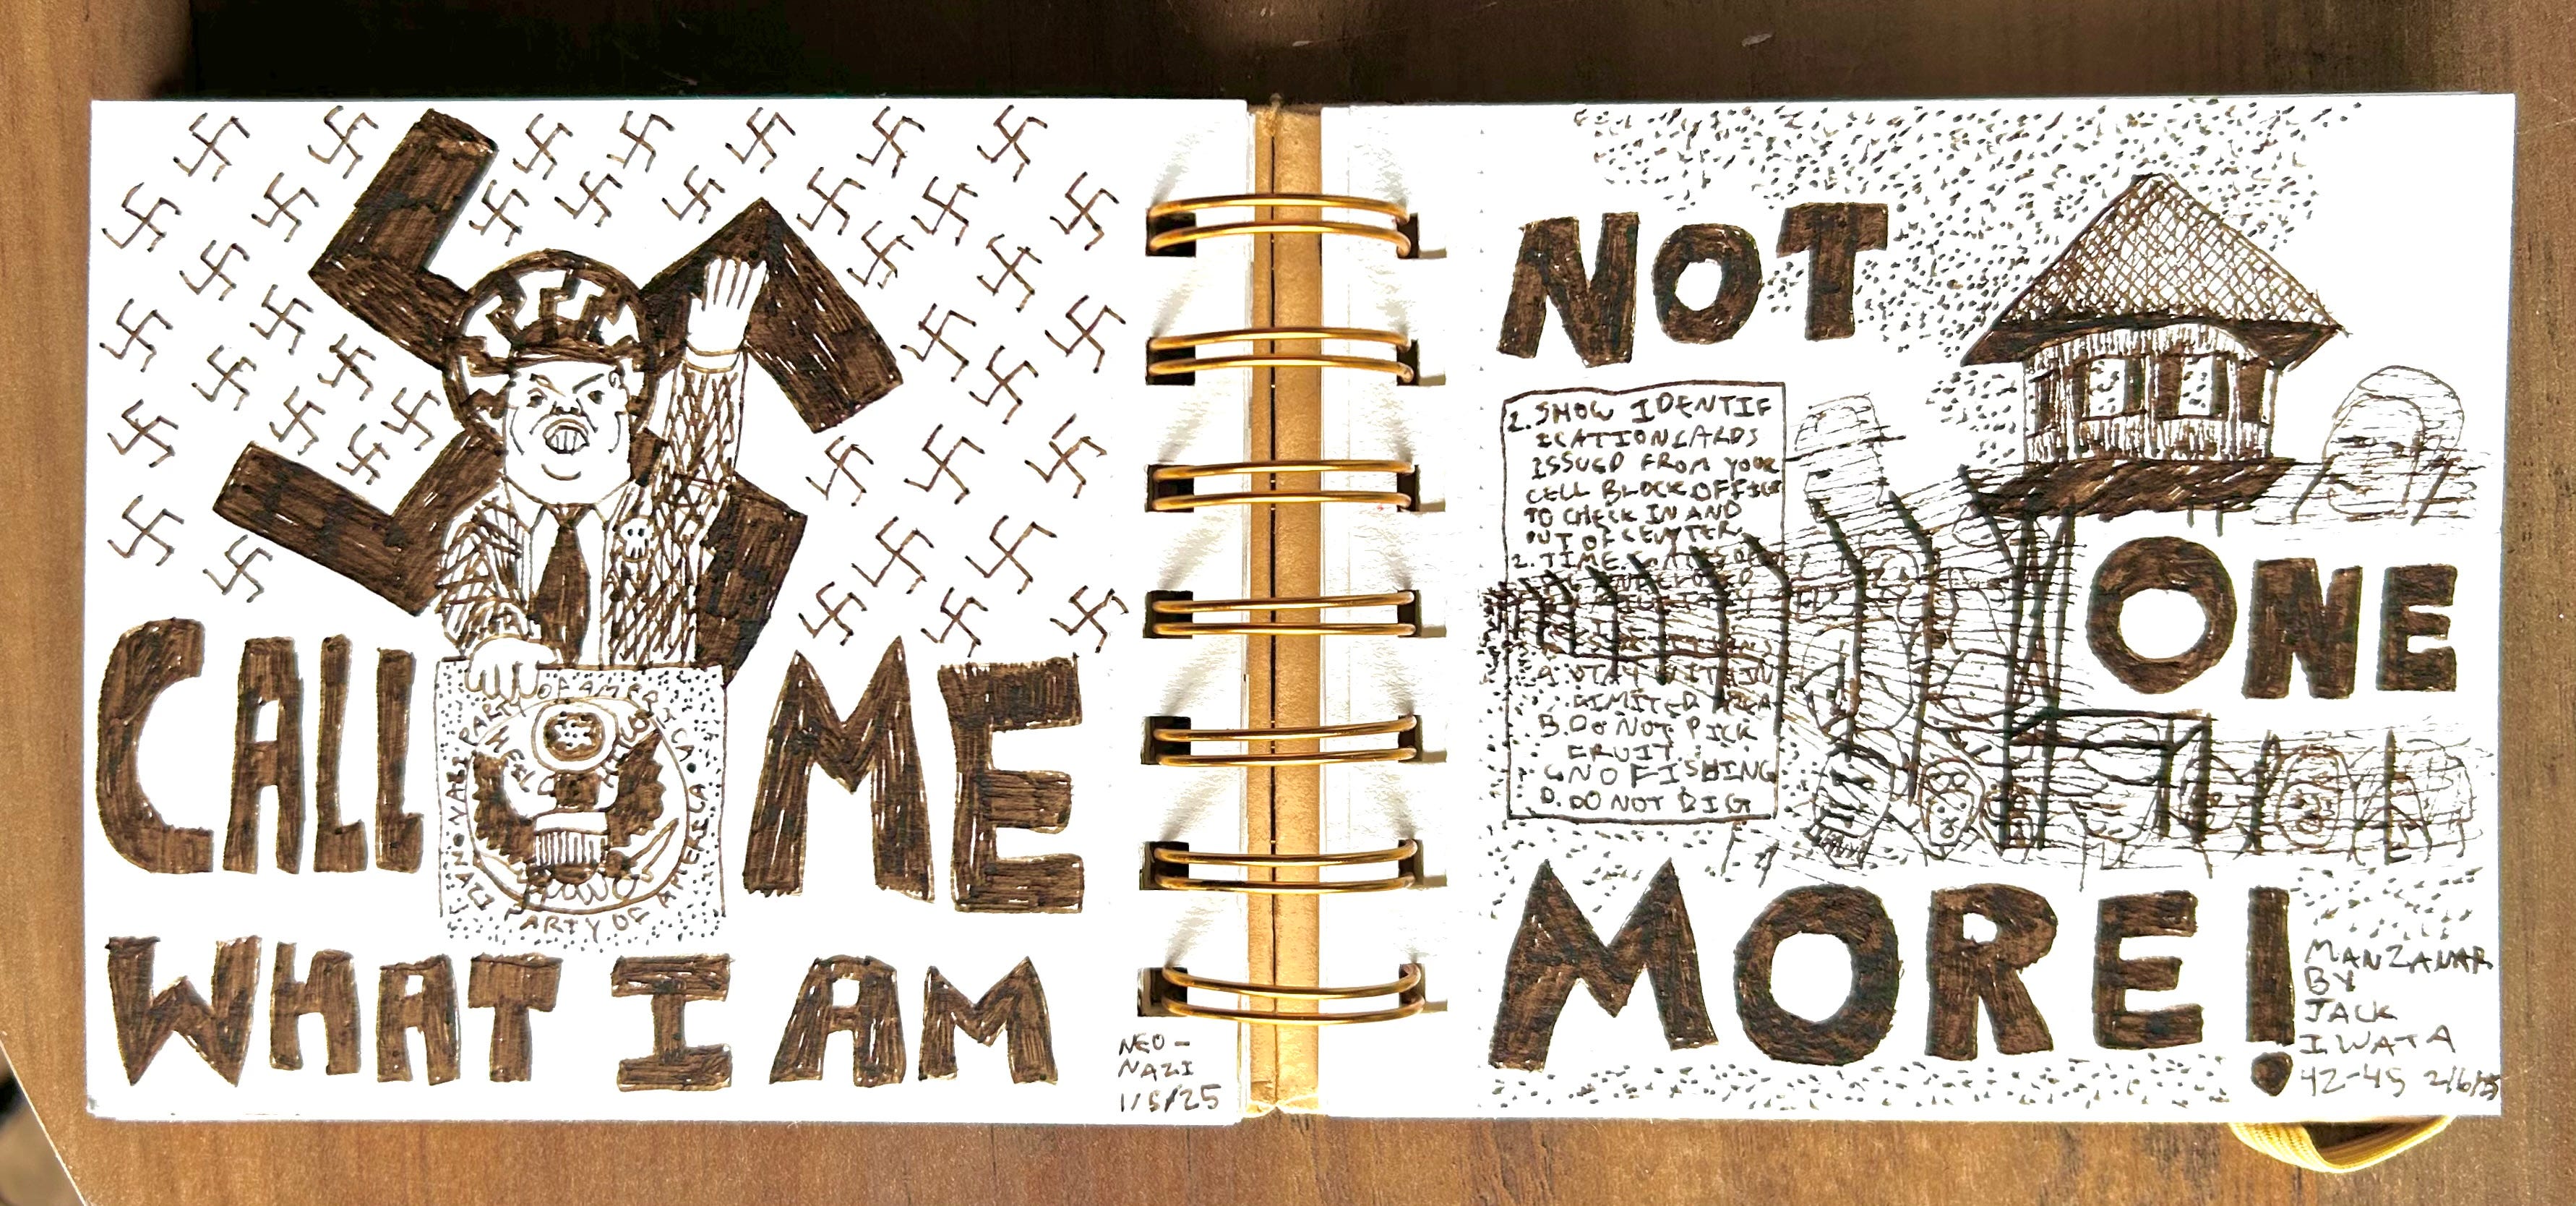 CALL ME
WHAT I AM
NAZI PARTY OF AMERICA
NEO-
NAZI
1/5/25
NOT
ONE
MORE!
1. SHOW IDENTIF
ICATION CARDS
ISSUED FROM YOUR
CELL BLOCK OFFICE
TO CHECK IN AND
OUT OF
2. TIME
A. STAY WITHIN
LIMITED AREA
B. DO NOT PICK
FRUIT
C. NO FISHING
D. DO NOT DIG
MANZANAR
BY
JACK
IWATA
42-45 2/6/25